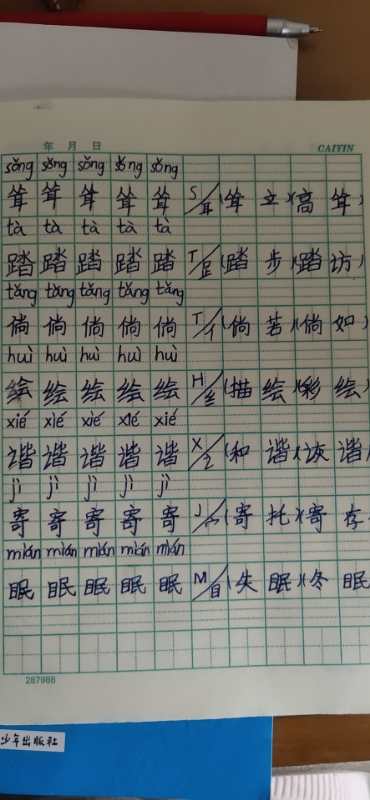 年 月 日 CAIYIN
sǒng sǒng sǒng sǒng sǒng
耸 耸 耸 耸 耸 S/耳 (耸立)(高耸)
tà tà tà tà tà
踏 踏 踏 踏 踏 T/𧾷 (踏步)(踏访)
tǎng tǎng tǎng tǎng tǎng
倘 倘 倘 倘 倘 T/亻 (倘若)(倘如)
huì huì huì huì huì
绘 绘 绘 绘 绘 H/纟 (描绘)(彩绘)
xié xié xié xié xié
谐 谐 谐 谐 谐 X/讠 (和谐)(诙谐)
jì jì jì jì jì
寄 寄 寄 寄 寄 J/宀 (寄托)(寄存
mián mián mián mián mián
眠 眠 眠 眠 眠 M/目 (失眠)(冬眠
287986
少年出版社